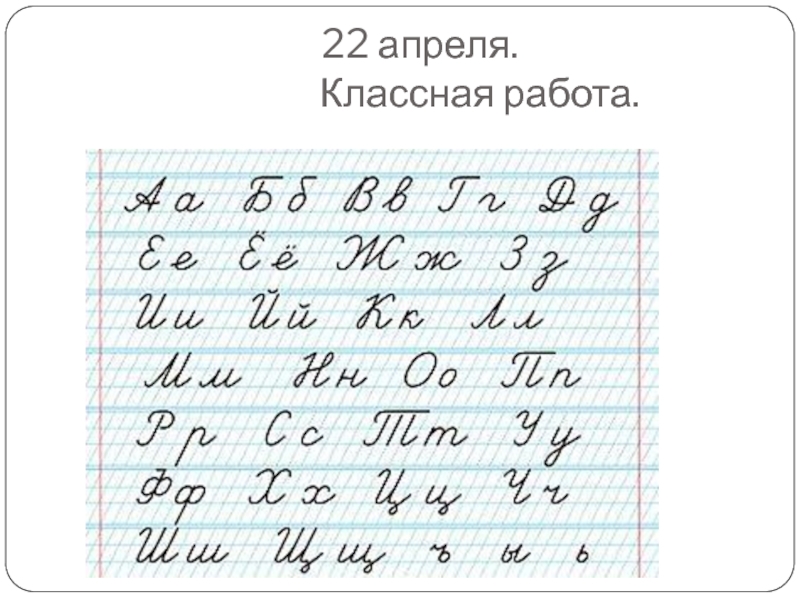 22 апреля.
Классная работа.
А а Б б В в Г г Д д
Е е Ё ё Ж ж З з
И и Й й К к Л л
М м Н н О о П п
Р р С с Т т У у
Ф ф Х х Ц ц Ч ч
Ш ш Щ щ ъ ы ь